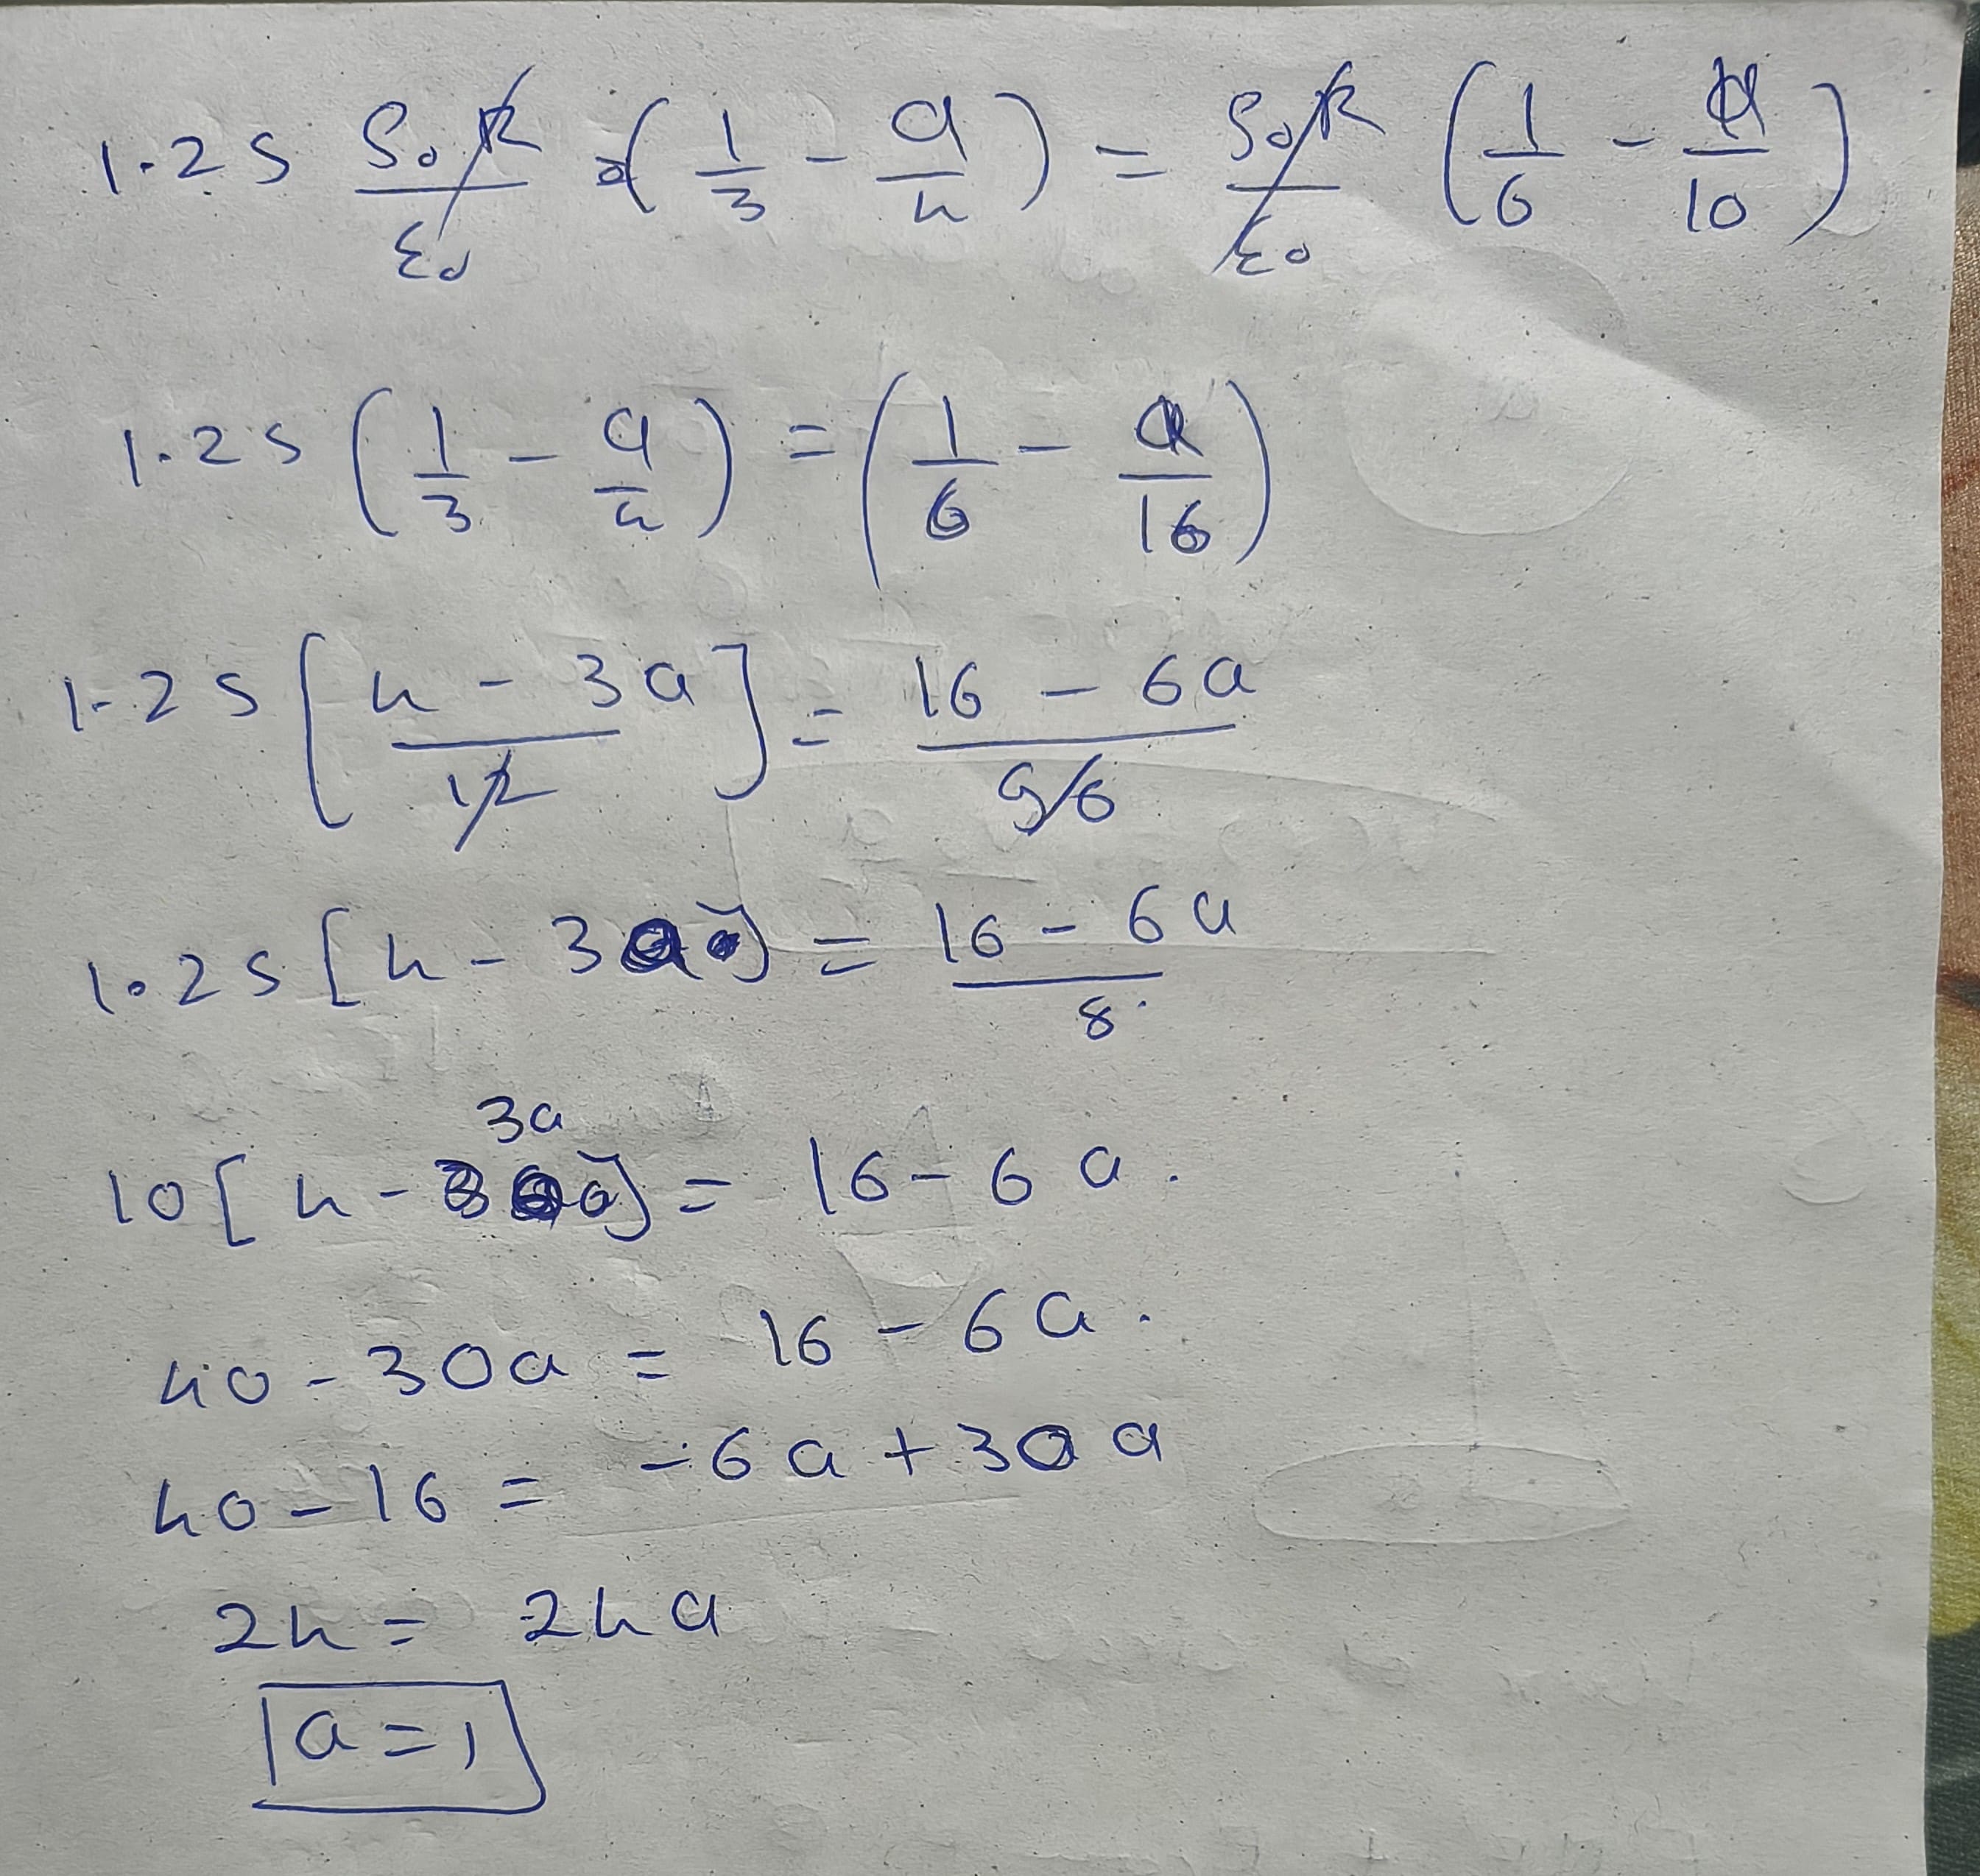 1.25 ρ₀R/ε₀ (1/3 - a/4) = ρ₀R/ε₀ (1/6 - a/16)
1.25 (1/3 - a/4) = (1/6 - a/16)
1.25 [4 - 3a / 12] = 16 - 6a / 96
1.25 [4 - 3a] = 16 - 6a / 8
10 [4 - 3a] = 16 - 6a.
40 - 30a = 16 - 6a.
40 - 16 = -6a + 30a
24 = 24a
a = 1